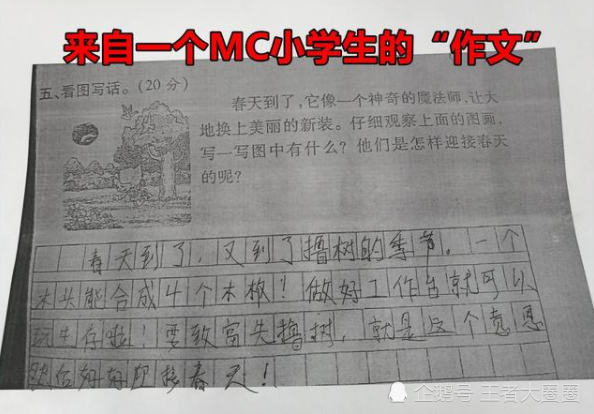 来自一个MC小学生的“作文”
五、看图写话。(20分)
春天到了,它像一个神奇的魔法师,让大
地换上美丽的新装。仔细观察上面的图画,
写一写图中有什么?他们是怎样迎接春天
的呢?
春天到了,又到了撸树的季节。一个
木头能合成4个木板!做好工作台就可以
玩生存啦!要致富先撸树,就是这个意思
快给好好迎接春天!
企鹅号 王者大圈圈